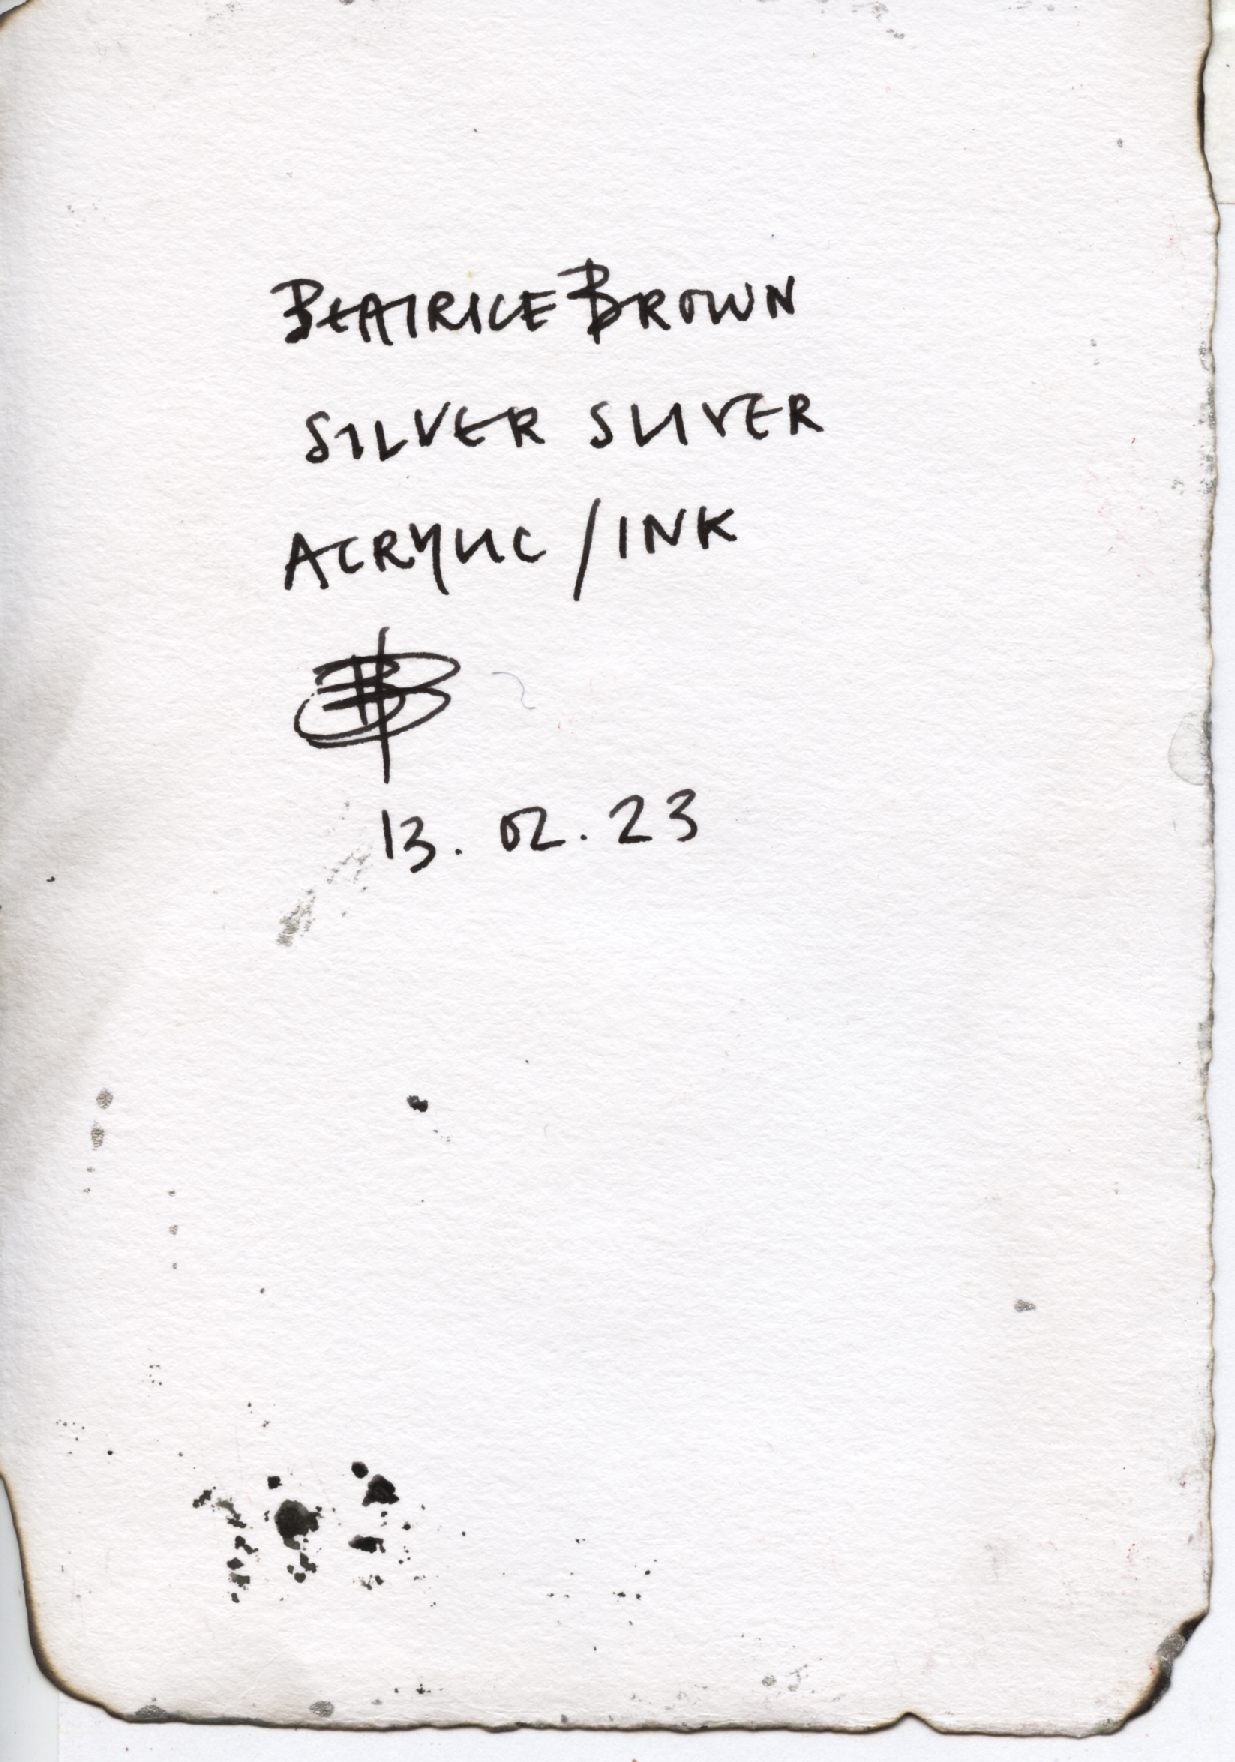 BEATRICE BROWN
SILVER SLIVER
ACRYLIC / INK
BB
13.02.23